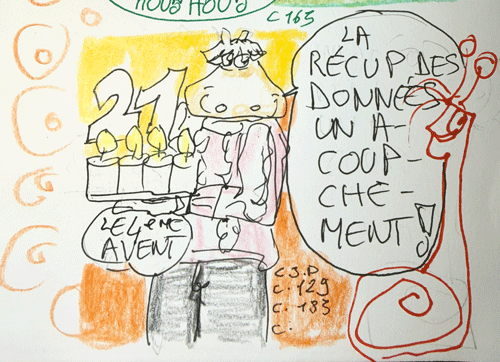 NOUS AOUS
C 163
LA
RÉCUP DES
DONNÉES
UN A-
COUP-
CHE-
MENT!
21
LE 4ème
AVENT
C J.P
C. 129
C. 183
C.